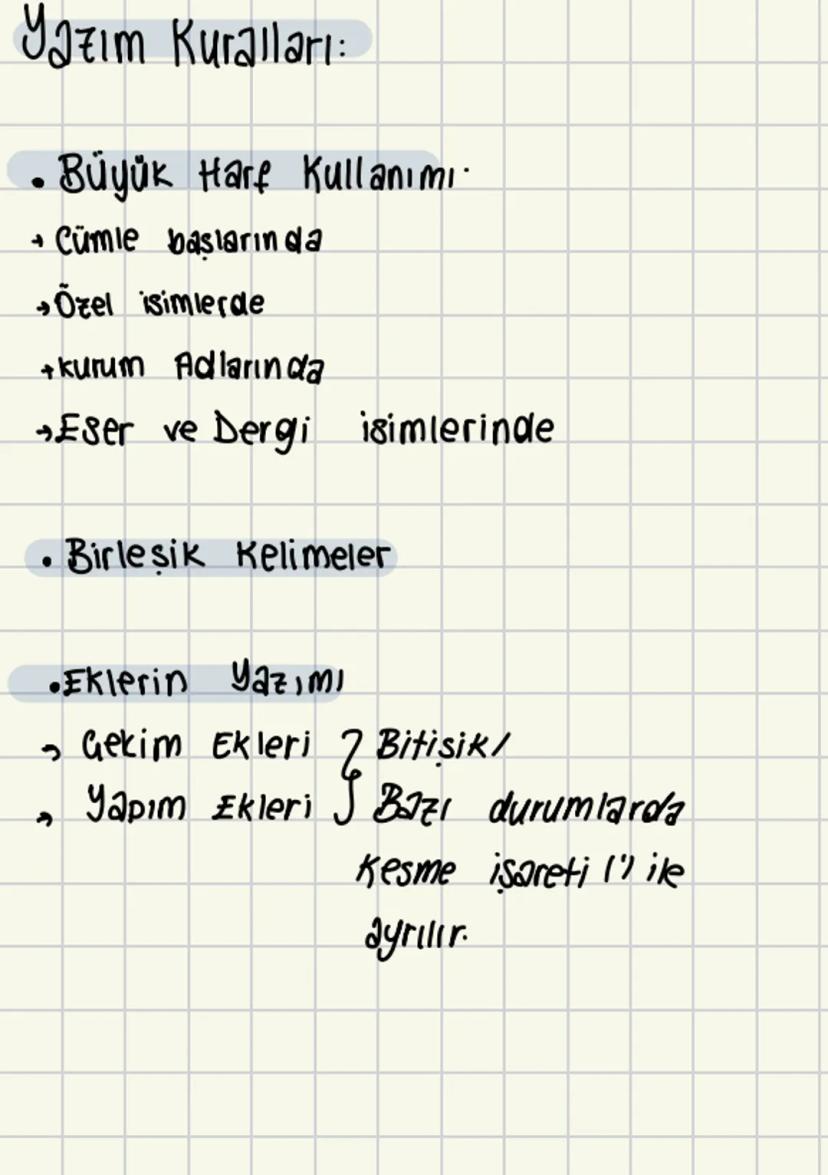 Yazım Kuralları:
• Büyük Harf Kullanımı.
→ Cümle başlarında
→ Özel isimlerde
→ kurum Adlarında
→ Eser ve Dergi isimlerinde
• Birleşik Kelimeler
• Eklerin Yazımı
→ Çekim Ekleri } Bitişik/
→ Yapım Ekleri } Bazı durumlarda
Kesme işareti (') ile
ayrılır.